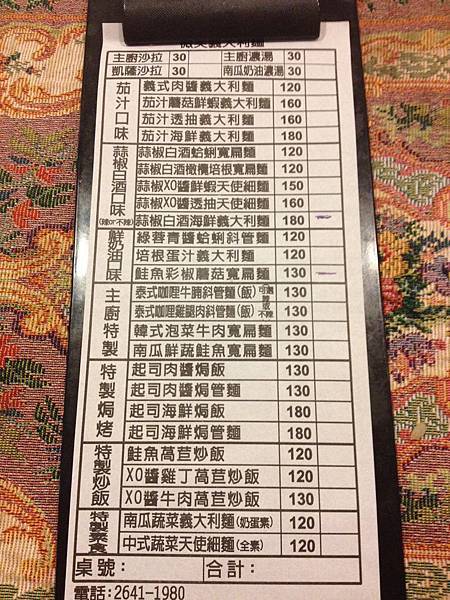 微笑義大利麵
主廚沙拉 30 主廚濃湯 30
凱薩沙拉 30 南瓜奶油濃湯 30
茄汁口味
義式肉醬義大利麵 120
茄汁蘑菇鮮蝦義大利麵 160
茄汁透抽義大利麵 160
茄汁海鮮義大利麵 180
蒜椒白酒口味(辣or不辣)
蒜椒白酒蛤蜊寬扁麵 120
蒜椒白酒橄欖培根寬扁麵 120
蒜椒XO醬鮮蝦天使細麵 150
蒜椒XO醬透抽天使細麵 160
蒜椒白酒海鮮義大利麵 180
鮮奶油口味
綠蓉青醬蛤蜊斜管麵 120
培根蛋汁義大利麵 120
鮭魚彩椒蘑菇寬扁麵 130
主廚特製
泰式咖哩牛腩斜管麵(飯) 可選辣或不辣 130
泰式咖哩雞腿肉斜管麵(飯) 130
韓式泡菜牛肉寬扁麵 130
南瓜鮮蔬鮭魚寬扁麵 130
特製焗烤
起司肉醬焗飯 130
起司肉醬焗管麵 130
起司海鮮焗飯 180
起司海鮮焗管麵 180
特製炒飯
鮭魚萵苣炒飯 120
XO醬雞丁萵苣炒飯 120
XO醬牛肉萵苣炒飯 130
特製素食
南瓜蔬菜義大利麵(奶蛋素) 120
中式蔬菜天使細麵(全素) 120
桌號： 合計：
電話:2641-1980